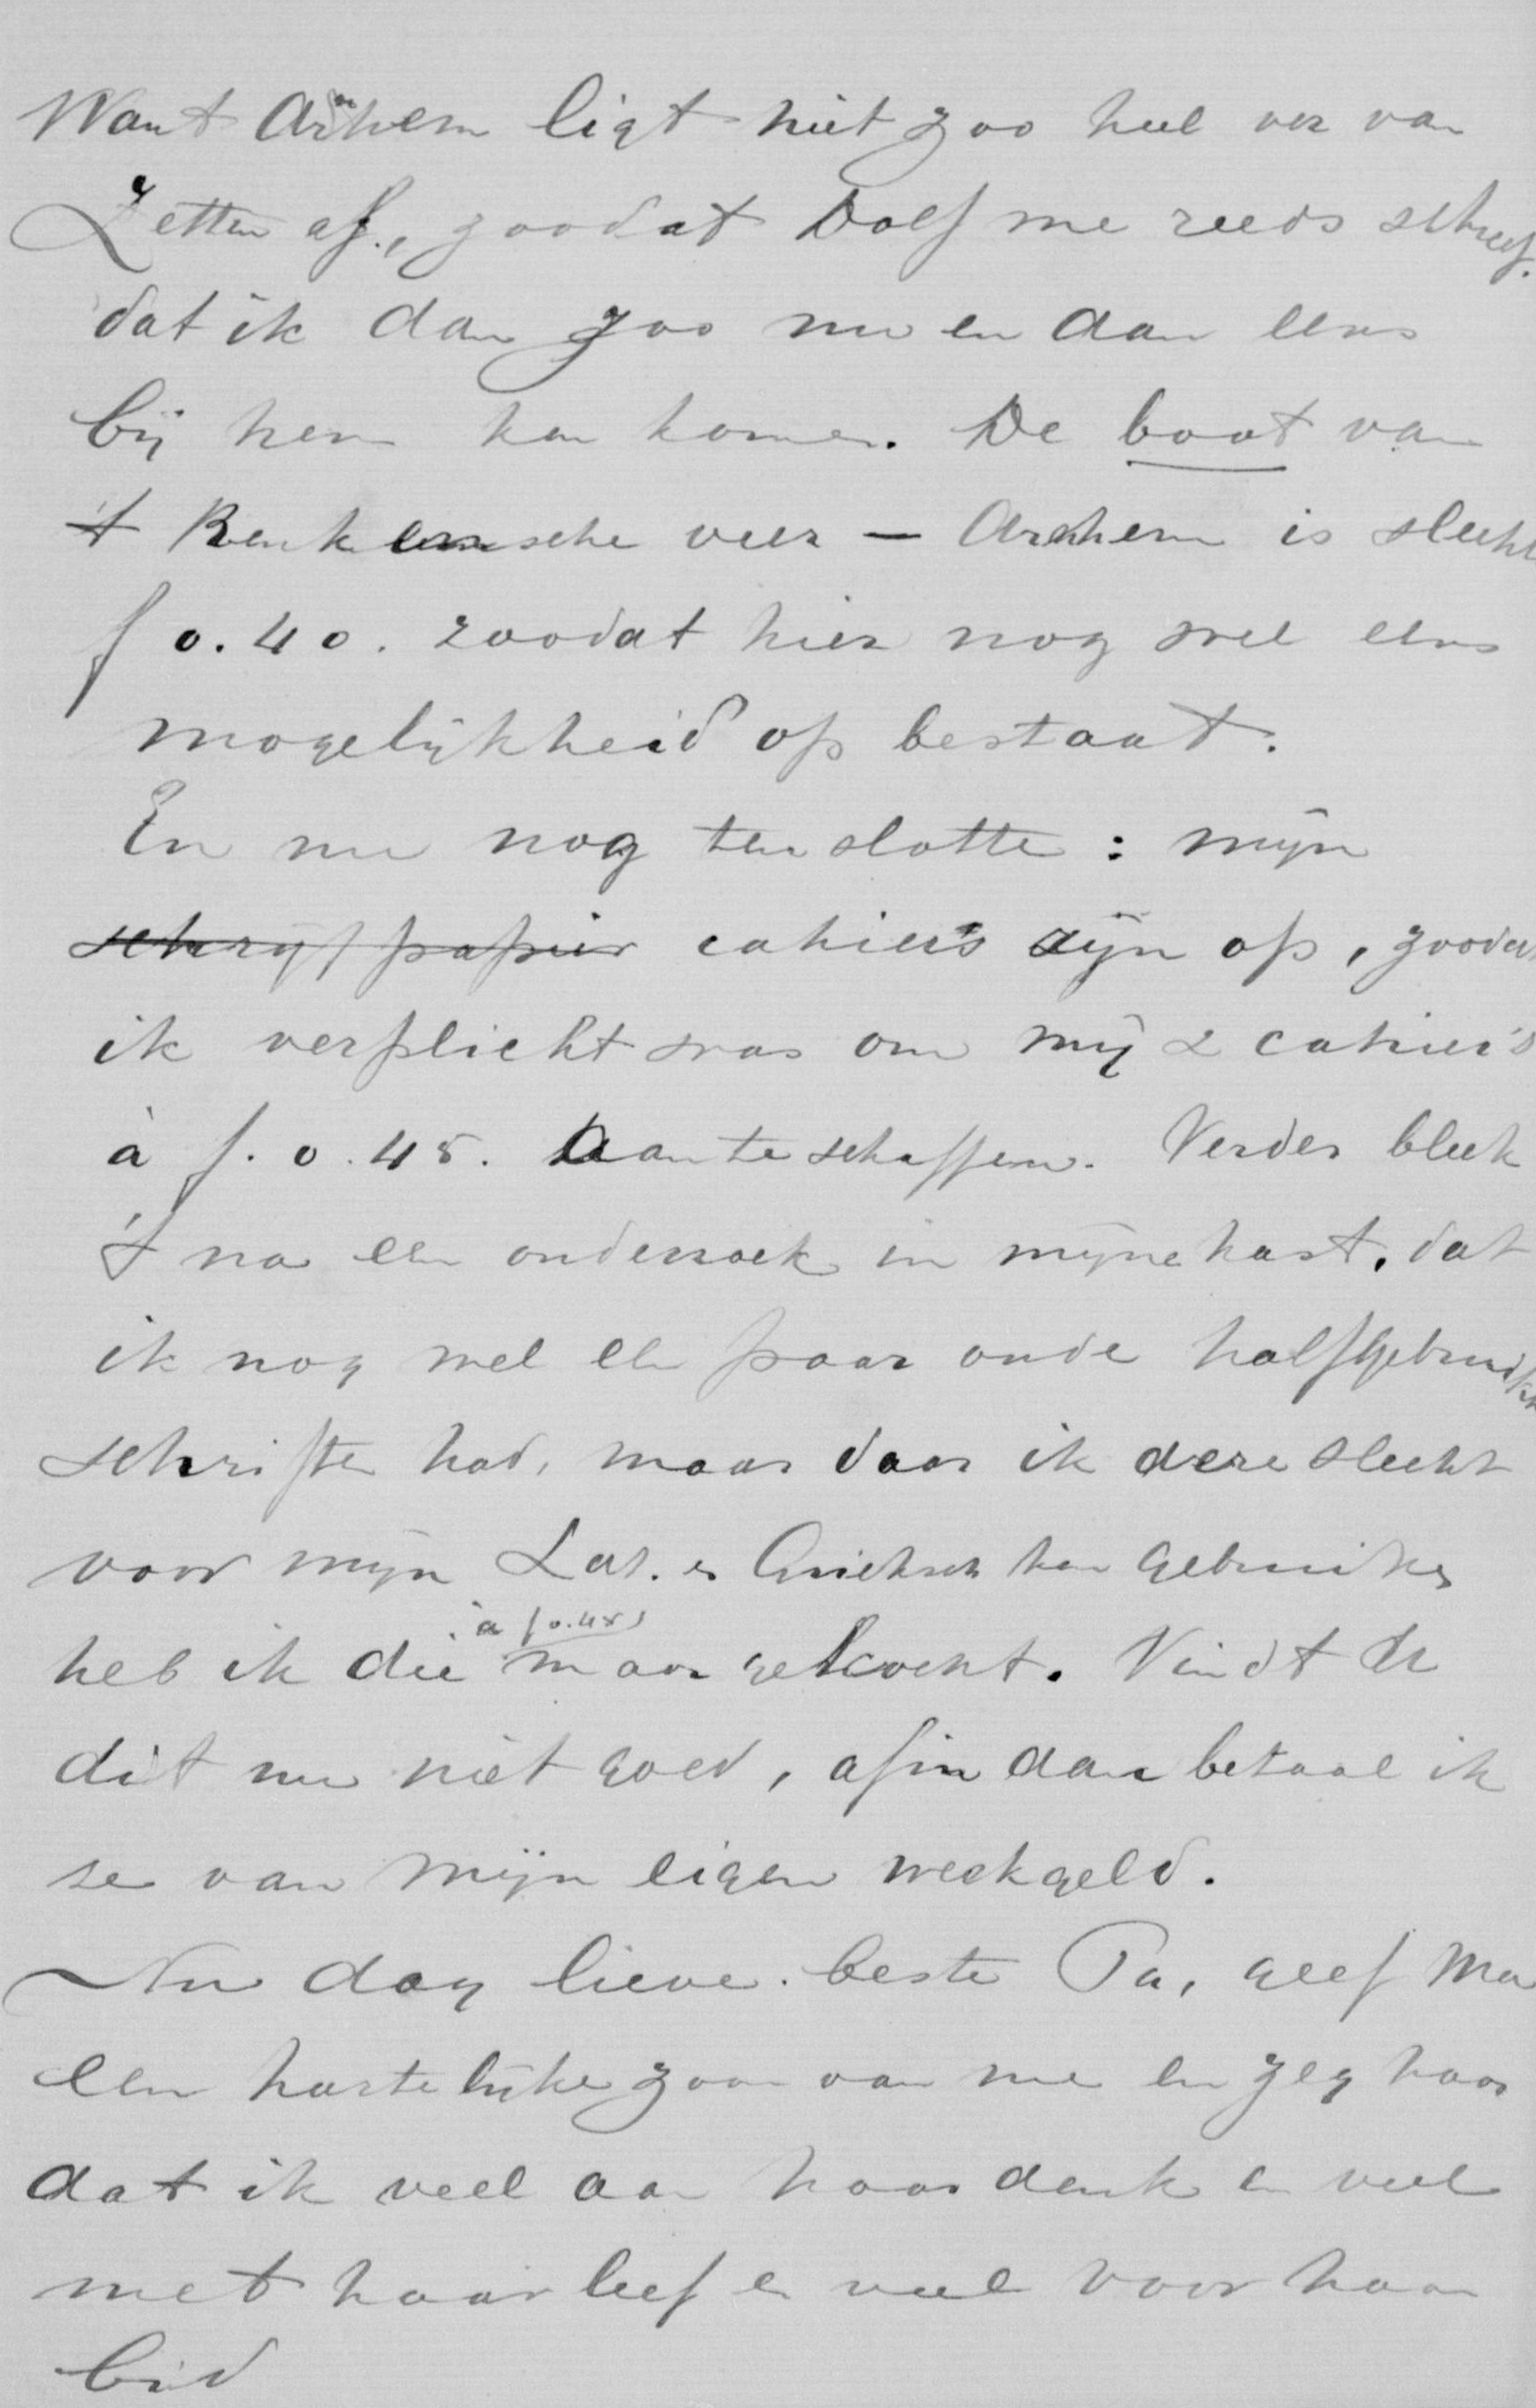 Want Arnhem ligt niet zoo heel ver van
Zetten af., zoodat Dolf me reeds schreef.
dat ik dan zoo nu en dan eens
bij hem kan komen. De boot van
't Renkumsche veer — Arnhem is slecht
f 0.40. zoodat hier nog wel eens
mogelijkheid op bestaat.
En nu nog ten slotte : mijn
schrijfpapier cahier's zijn op, zoodat
ik verplicht was om mij 2 cahier's
à f. 0.45. aan te schaffen. Verder bleek
't na een onderzoek in mijne kast, dat
ik nog wel een paar oude halfgebruikte
schriften had, maar daar ik deze slecht
voor mijn Lat. en Grieksch kan gebruiken
à f 0.45
heb ik die maar gekocht. Vindt U
dit nu niet goed, afin dan betaal ik
ze van mijn eigen weekgeld.
Nu dag lieve. beste Pa, geef Ma
een hartelijke zoen van me en zeg haar
dat ik veel aan haar denk en veel
met haar leef en veel voor haar
bid